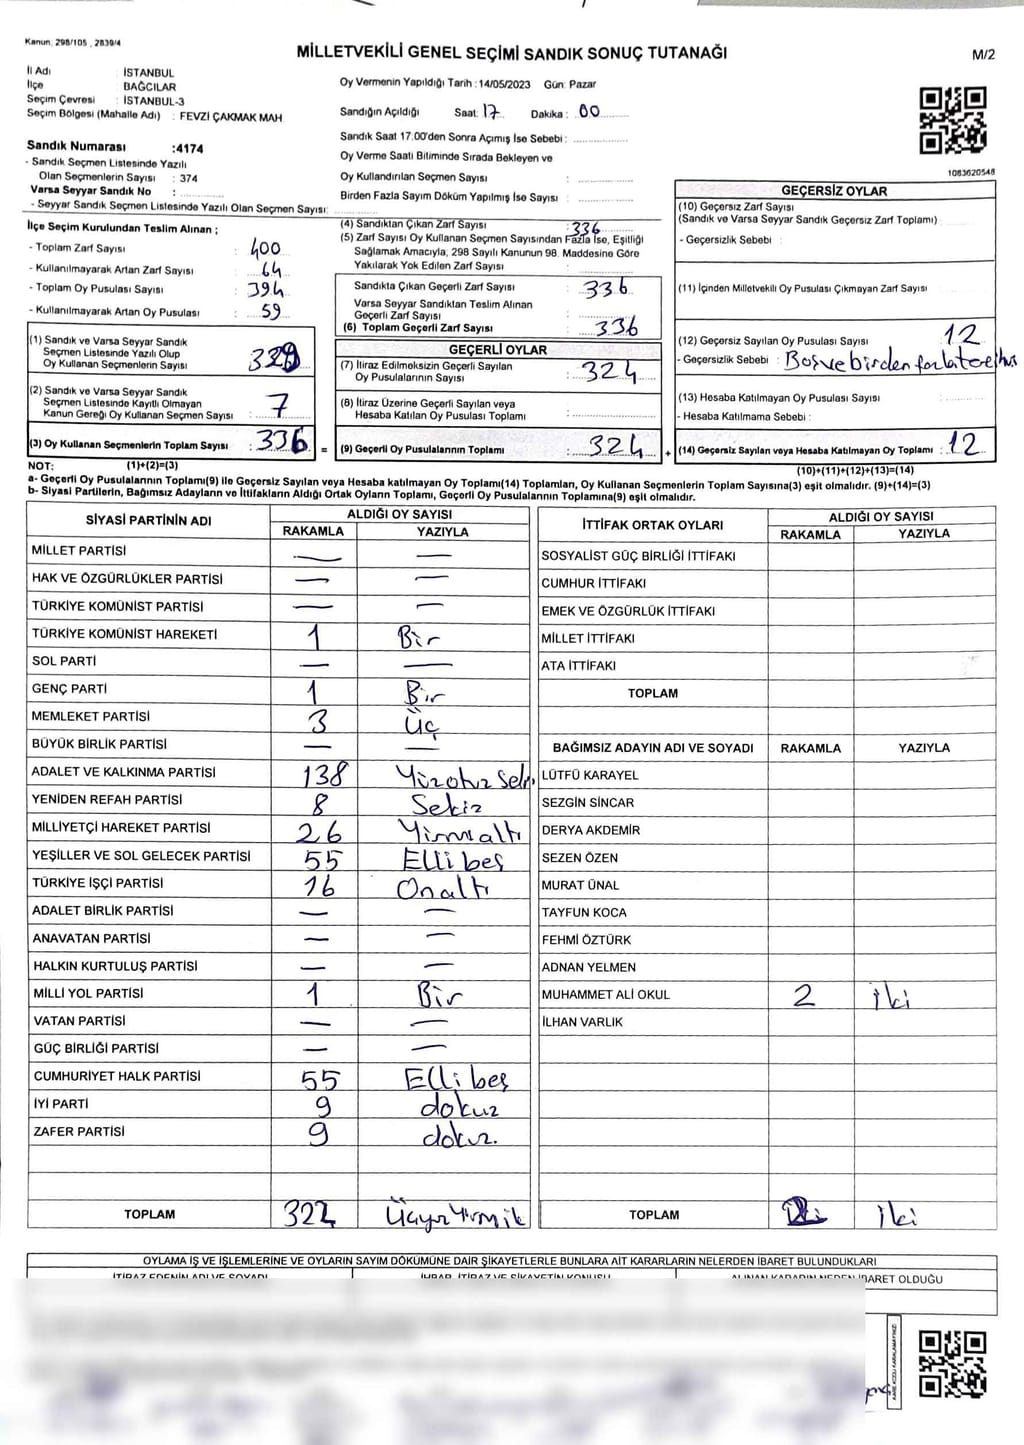 Kanun; 298/105 , 2839/4
MİLLETVEKİLİ GENEL SEÇİMİ SANDIK SONUÇ TUTANAĞI
M/2
İl Adı : İSTANBUL
İlçe BAĞCILAR
Seçim Çevresi : İSTANBUL-3
Seçim Bölgesi (Mahalle Adı) : FEVZİ ÇAKMAK MAH
Sandık Numarası :4174
- Sandık Seçmen Listesinde Yazılı
Olan Seçmenlerin Sayısı : 374
Varsa Seyyar Sandık No :
- Seyyar Sandık Seçmen Listesinde Yazılı Olan Seçmen Sayısı:
Oy Vermenin Yapıldığı Tarih :14/05/2023 Gün: Pazar
Sandığın Açıldığı Saat: 17 Dakika : 00
Sandık Saat 17.00'den Sonra Açımış İse Sebebi :
Oy Verme Saati Bitiminde Sırada Bekleyen ve
Oy Kullandırılan Seçmen Sayısı :
Birden Fazla Sayım Döküm Yapılmış İse Sayısı :
1083620548
İlçe Seçim Kurulundan Teslim Alınan ;
- Toplam Zarf Sayısı : 400
- Kullanılmayarak Artan Zarf Sayısı : 64
- Toplam Oy Pusulası Sayısı : 394
- Kullanılmayarak Artan Oy Pusulası : 59
(1) Sandık ve Varsa Seyyar Sandık
Seçmen Listesinde Yazılı Olup
Oy Kullanan Seçmenlerin Sayısı
(2) Sandık ve Varsa Seyyar Sandık
Seçmen Listesinde Kayıtlı Olmayan
Kanun Gereği Oy Kullanan Seçmen Sayısı : 7
(3) Oy Kullanan Seçmenlerin Toplam Sayısı : 336 =
(4) Sandıktan Çıkan Zarf Sayısı : 336
(5) Zarf Sayısı Oy Kullanan Seçmen Sayısından Fazla İse, Eşitliği
Sağlamak Amacıyla, 298 Sayılı Kanunun 98. Maddesine Göre
Yakılarak Yok Edilen Zarf Sayısı :
Sandıkta Çıkan Geçerli Zarf Sayısı : 336
Varsa Seyyar Sandıktan Teslim Alınan
Geçerli Zarf Sayısı :
(6) Toplam Geçerli Zarf Sayısı : 336
GEÇERLİ OYLAR
(7) İtiraz Edilmeksizin Geçerli Sayılan
Oy Pusulalarının Sayısı : 324
(8) İtiraz Üzerine Geçerli Sayılan veya
Hesaba Katılan Oy Pusulası Toplamı :
(9) Geçerli Oy Pusulalarının Toplamı : 324 +
GEÇERSİZ OYLAR
(10) Geçersiz Zarf Sayısı
(Sandık ve Varsa Seyyar Sandık Geçersiz Zarf Toplamı) :
- Geçersizlik Sebebi :
(11) İçinden Milletvekili Oy Pusulası Çıkmayan Zarf Sayısı :
(12) Geçersiz Sayılan Oy Pusulası Sayısı : 12
- Geçersizlik Sebebi : Boş ve birden fazla
(13) Hesaba Katılmayan Oy Pusulası Sayısı :
- Hesaba Katılmama Sebebi :
(14) Geçersiz Sayılan veya Hesaba Katılmayan Oy Toplamı : 12
NOT: (1)+(2)=(3)
(10)+(11)+(12)+(13)=(14)
a- Geçerli Oy Pusulalarının Toplamı(9) ile Geçersiz Sayılan veya Hesaba katılmayan Oy Toplamı(14) Toplamları, Oy Kullanan Seçmenlerin Toplam Sayısına(3) eşit olmalıdır. (9)+(14)=(3)
b- Siyasi Partilerin, Bağımsız Adayların ve İttifakların Aldığı Ortak Oyların Toplamı, Geçerli Oy Pusulalarının Toplamına(9) eşit olmalıdır.
SİYASİ PARTİNİN ADI
ALDIĞI OY SAYISI
RAKAMLA YAZIYLA
MİLLET PARTİSİ — —
HAK VE ÖZGÜRLÜKLER PARTİSİ — —
TÜRKİYE KOMÜNİST PARTİSİ — —
TÜRKİYE KOMÜNİST HAREKETİ 1 Bir
SOL PARTİ — —
GENÇ PARTİ 1 Bir
MEMLEKET PARTİSİ 3 Üç
BÜYÜK BİRLİK PARTİSİ — —
ADALET VE KALKINMA PARTİSİ 138 Yüzotuz
YENİDEN REFAH PARTİSİ 8 Sekiz
MİLLİYETÇİ HAREKET PARTİSİ 26 Yirmialtı
YEŞİLLER VE SOL GELECEK PARTİSİ 55 Elli beş
TÜRKİYE İŞÇİ PARTİSİ 16 Onaltı
ADALET BİRLİK PARTİSİ — —
ANAVATAN PARTİSİ — —
HALKIN KURTULUŞ PARTİSİ — —
MİLLİ YOL PARTİSİ 1 Bir
VATAN PARTİSİ — —
GÜÇ BİRLİĞİ PARTİSİ — —
CUMHURİYET HALK PARTİSİ 55 Elli beş
İYİ PARTİ 9 dokuz
ZAFER PARTİSİ 9 dokuz.
TOPLAM 322
İTTİFAK ORTAK OYLARI
ALDIĞI OY SAYISI
RAKAMLA YAZIYLA
SOSYALİST GÜÇ BİRLİĞİ İTTİFAKI
CUMHUR İTTİFAKI
EMEK VE ÖZGÜRLÜK İTTİFAKI
MİLLET İTTİFAKI
ATA İTTİFAKI
TOPLAM
BAĞIMSIZ ADAYIN ADI VE SOYADI RAKAMLA YAZIYLA
LÜTFÜ KARAYEL
SEZGİN SİNCAR
DERYA AKDEMİR
SEZEN ÖZEN
MURAT ÜNAL
TAYFUN KOCA
FEHMİ ÖZTÜRK
ADNAN YELMEN
MUHAMMET ALİ OKUL 2 iki
İLHAN VARLIK
TOPLAM iki
OYLAMA İŞ VE İŞLEMLERİNE VE OYLARIN SAYIM DÖKÜMÜNE DAİR ŞİKAYETLERLE BUNLARA AİT KARARLARIN NELERDEN İBARET BULUNDUKLARI
İTİRAZ EDENİN ADI VE SOYADI
İHBAR, İTİRAZ VE ŞİKAYETİN KONUSU
ALINAN KARARIN NEDEN İBARET OLDUĞU